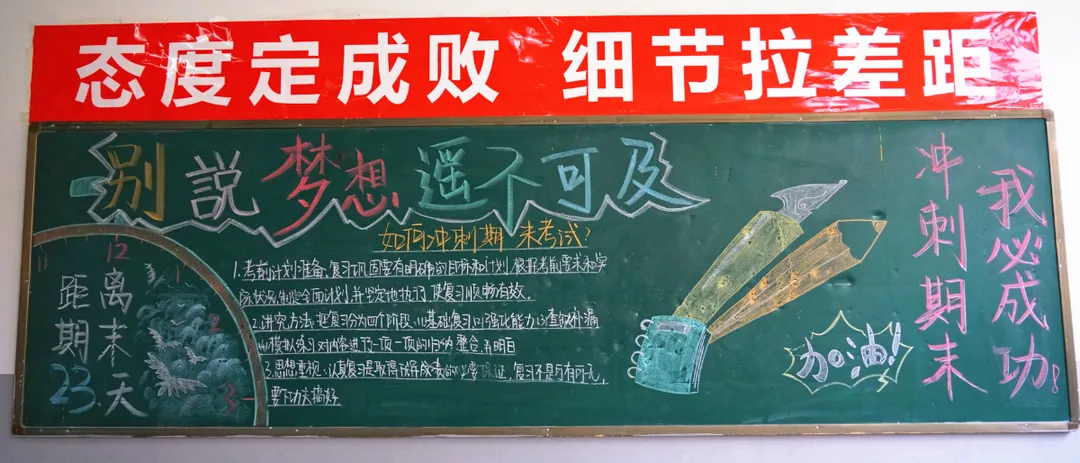 态度定成败 细节拉差距
别説梦想遥不可及
如何冲刺期末考试?
1.考前计划准备,复习巩固要有明确的目标和计划,根据考前要求和学
际状况,制定全面计划,并坚定地执行,使复习顺畅有效。
2.讲究方法:把复习分为四个阶段,(1)基础复习(2)强化能力(3)查缺补漏
(4)模拟练习 对内容进行一项一项的归纳 整合 弄明白
3.思想重视:认真复习是取得优异成表的必要保证,复习不是可有可无,
要下功夫搞好
12
11
1
2
3
距离
期末
23天
加油!
冲刺期末
我必成功!